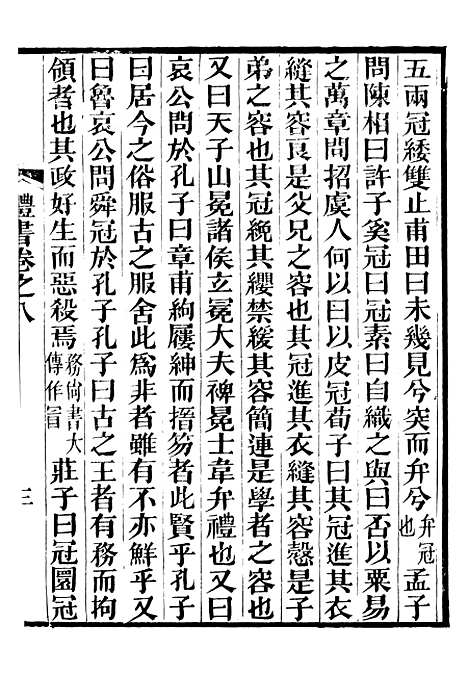 五兩冠緌雙止甫田曰未幾見兮突而弁兮弁冠也孟子
問陳相曰許子奚冠曰冠素曰自織之與曰否以粟易
之萬章問招虞人何以曰以皮冠荀子曰其冠進其衣
縫其容良是父兄之容也其冠進其衣縫其容慤是子
弟之容也其冠絻其纓禁緩其容簡連是學者之容也
又曰天子山冕諸侯立冕大夫裨冕士韋弁禮也又曰
哀公問於孔子曰章甫絇屨紳而搢笏者此賢乎孔子
曰居今之俗服古之服舍此為非者雖有不亦鮮乎又
曰魯哀公問舜冠於孔子孔子曰古之王者有務而拘
領者也其政好生而惡殺焉務尚書大傳作冒莊子曰冠圜冠
禮書卷之八
三